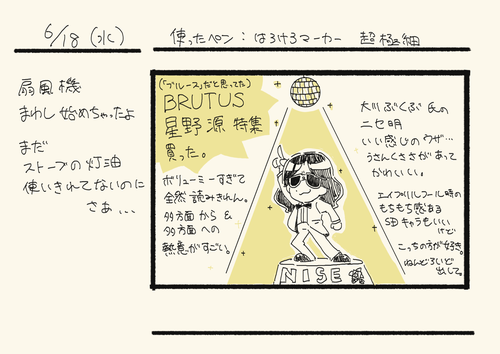 6/18 (水)
使ったペン：はろけろマーカー 超極細
扇風機
まわし始めちゃったよ
まだ
ストーブの灯油
使いきれてないのに
さぁ...
(「ブルース」だと思ってた)
BRUTUS
星野源 特集
買った。
ボリューミーすぎて
全然読みきれん。
多方面から &
多方面への
熱意がすごい。
大川ぶくぶ氏の
ニセ明
いい感じのウザ…
うさんくささがあって
かわいい。
エイプリルフール時の
もちもち感ある
SDキャラもいい
けど
こっちの方が好き。
ねんどろいど
出して。
NISE